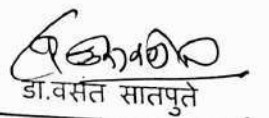 डा.वसंत सातपुते